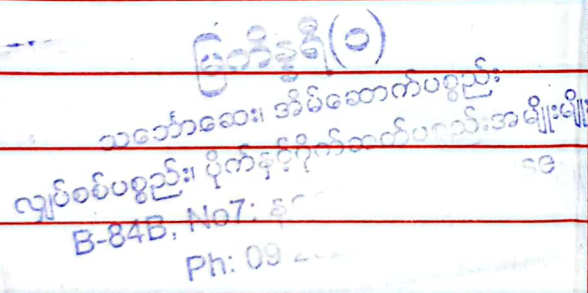 မြတိန္ဒရီ(၁)
သင်္ဘောဆေး၊ အိမ်ဆောက်ပစ္စည်း
လျှပ်စစ်ပစ္စည်း၊ ပိုက်နှင့်ပိုက်ဆက်ပစ္စည်းအမျိုးမျိုး
B-84B, No7:
Ph: 09